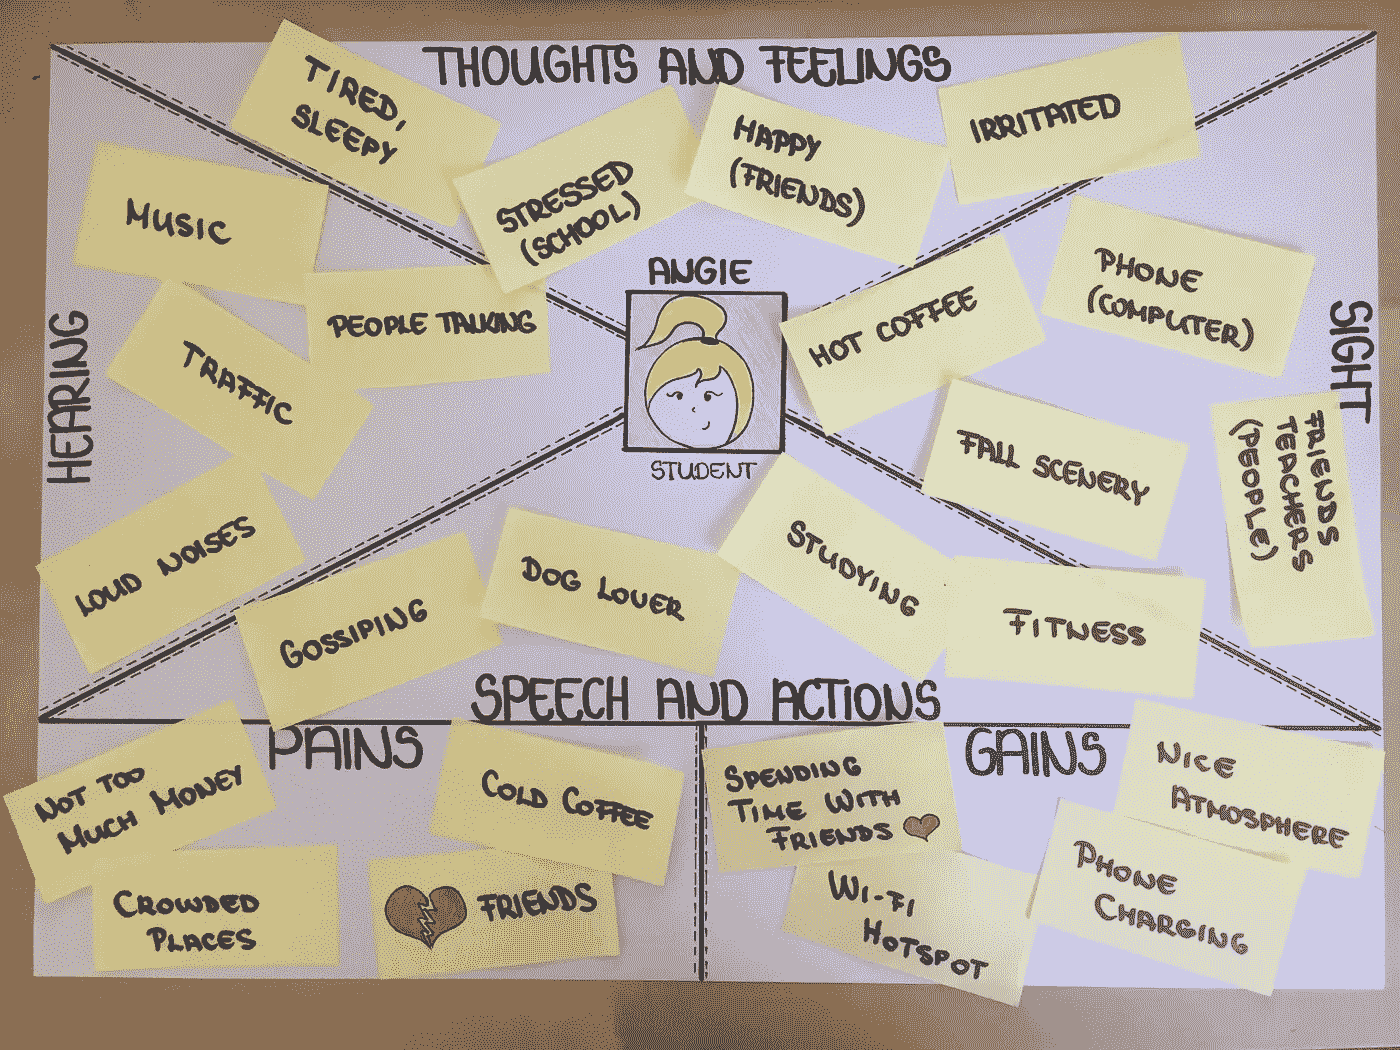 THOUGHTS AND FEELINGS
TIRED,
SLEEPY
STRESSED
(SCHOOL)
HAPPY
(FRIENDS)
IRRITATED
HEARING
MUSIC
PEOPLE TALKING
TRAFFIC
LOUD NOISES
ANGIE
STUDENT
SIGHT
HOT COFFEE
PHONE
(COMPUTER)
FALL SCENERY
FRIENDS
TEACHERS
(PEOPLE)
GOSSIPING
DOG LOVER
STUDYING
FITNESS
SPEECH AND ACTIONS
PAINS
NOT TOO
MUCH MONEY
COLD COFFEE
CROWDED
PLACES
FRIENDS
GAINS
SPENDING
TIME WITH
FRIENDS
NICE
ATMOSPHERE
WI-FI
HOTSPOT
PHONE
CHARGING